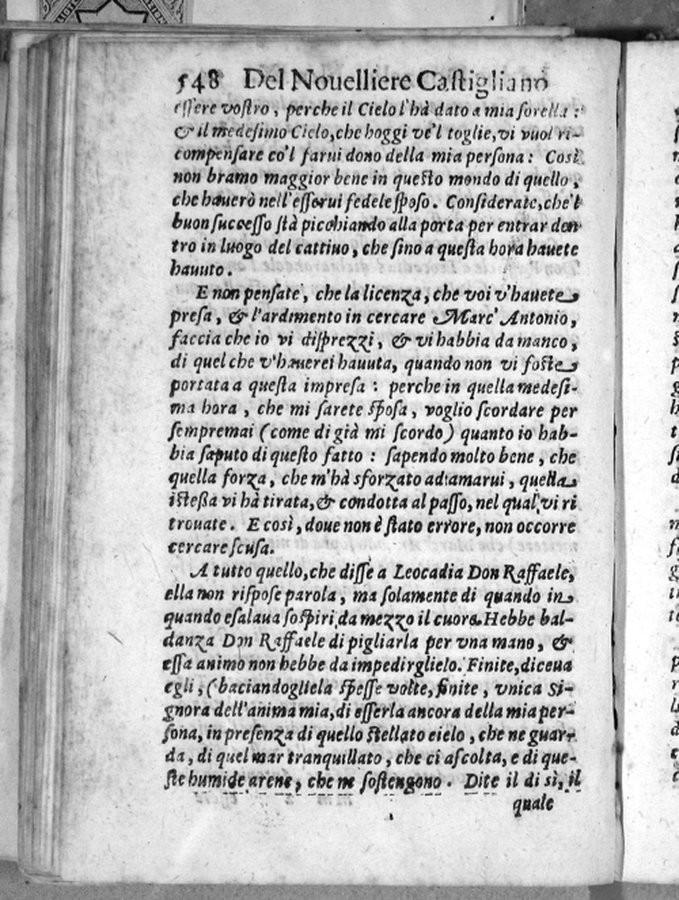 548 Del Nouelliere Castigliano
essere vostro, perche il Cielo l'hà dato a mia sorella:
& il medesimo Cielo, che hoggi ve'l toglie, vi vuol ri-
compensare co'l farui dono della mia persona: Così
non bramo maggior bene in questo mondo di quello,
che hauerò nell'esserui fedele sposo. Considerate, che'l
buon successo stà picchiando alla porta per entrar den
tro in luogo del cattiuo, che sino a questa hora hauete
hauuto.
E non pensate, che la licenza, che voi v'hauete
presa, & l'ardimento in cercare Marc' Antonio,
faccia che io vi disprezzi, & vi habbia da manco,
di quel che v'hauerei hauuta, quando non vi foste
portata a questa impresa: perche in quella medesi-
ma hora, che mi sarete sposa, voglio scordare per
sempremai (come di già mi scordo) quanto io hab-
bia saputo di questo fatto: sapendo molto bene, che
quella forza, che m'hà sforzato ad amarui, quella
istessa vi hà tirata, & condotta al passo, nel qual vi ri
trouate. E così, doue non è stato errore, non occorre
cercare scusa.
A tutto quello, che disse a Leocadia Don Raffaele,
ella non rispose parola, ma solamente di quando in
quando esalaua sospiri da mezzo il cuore. Hebbe bal-
danza Don Raffaele di pigliarla per vna mano, &
essa animo non hebbe da impedirglielo. Finite, diceua
egli, (baciandogliela spesse volte, finite, vnica Si-
gnora dell'anima mia, di esserla ancora della mia per-
sona, in presenza di quello stellato cielo, che ne guar-
da, di quel mar tranquillato, che ci ascolta, e di que-
ste humide arene, che ne sostengono. Dite il di sì, il
quale